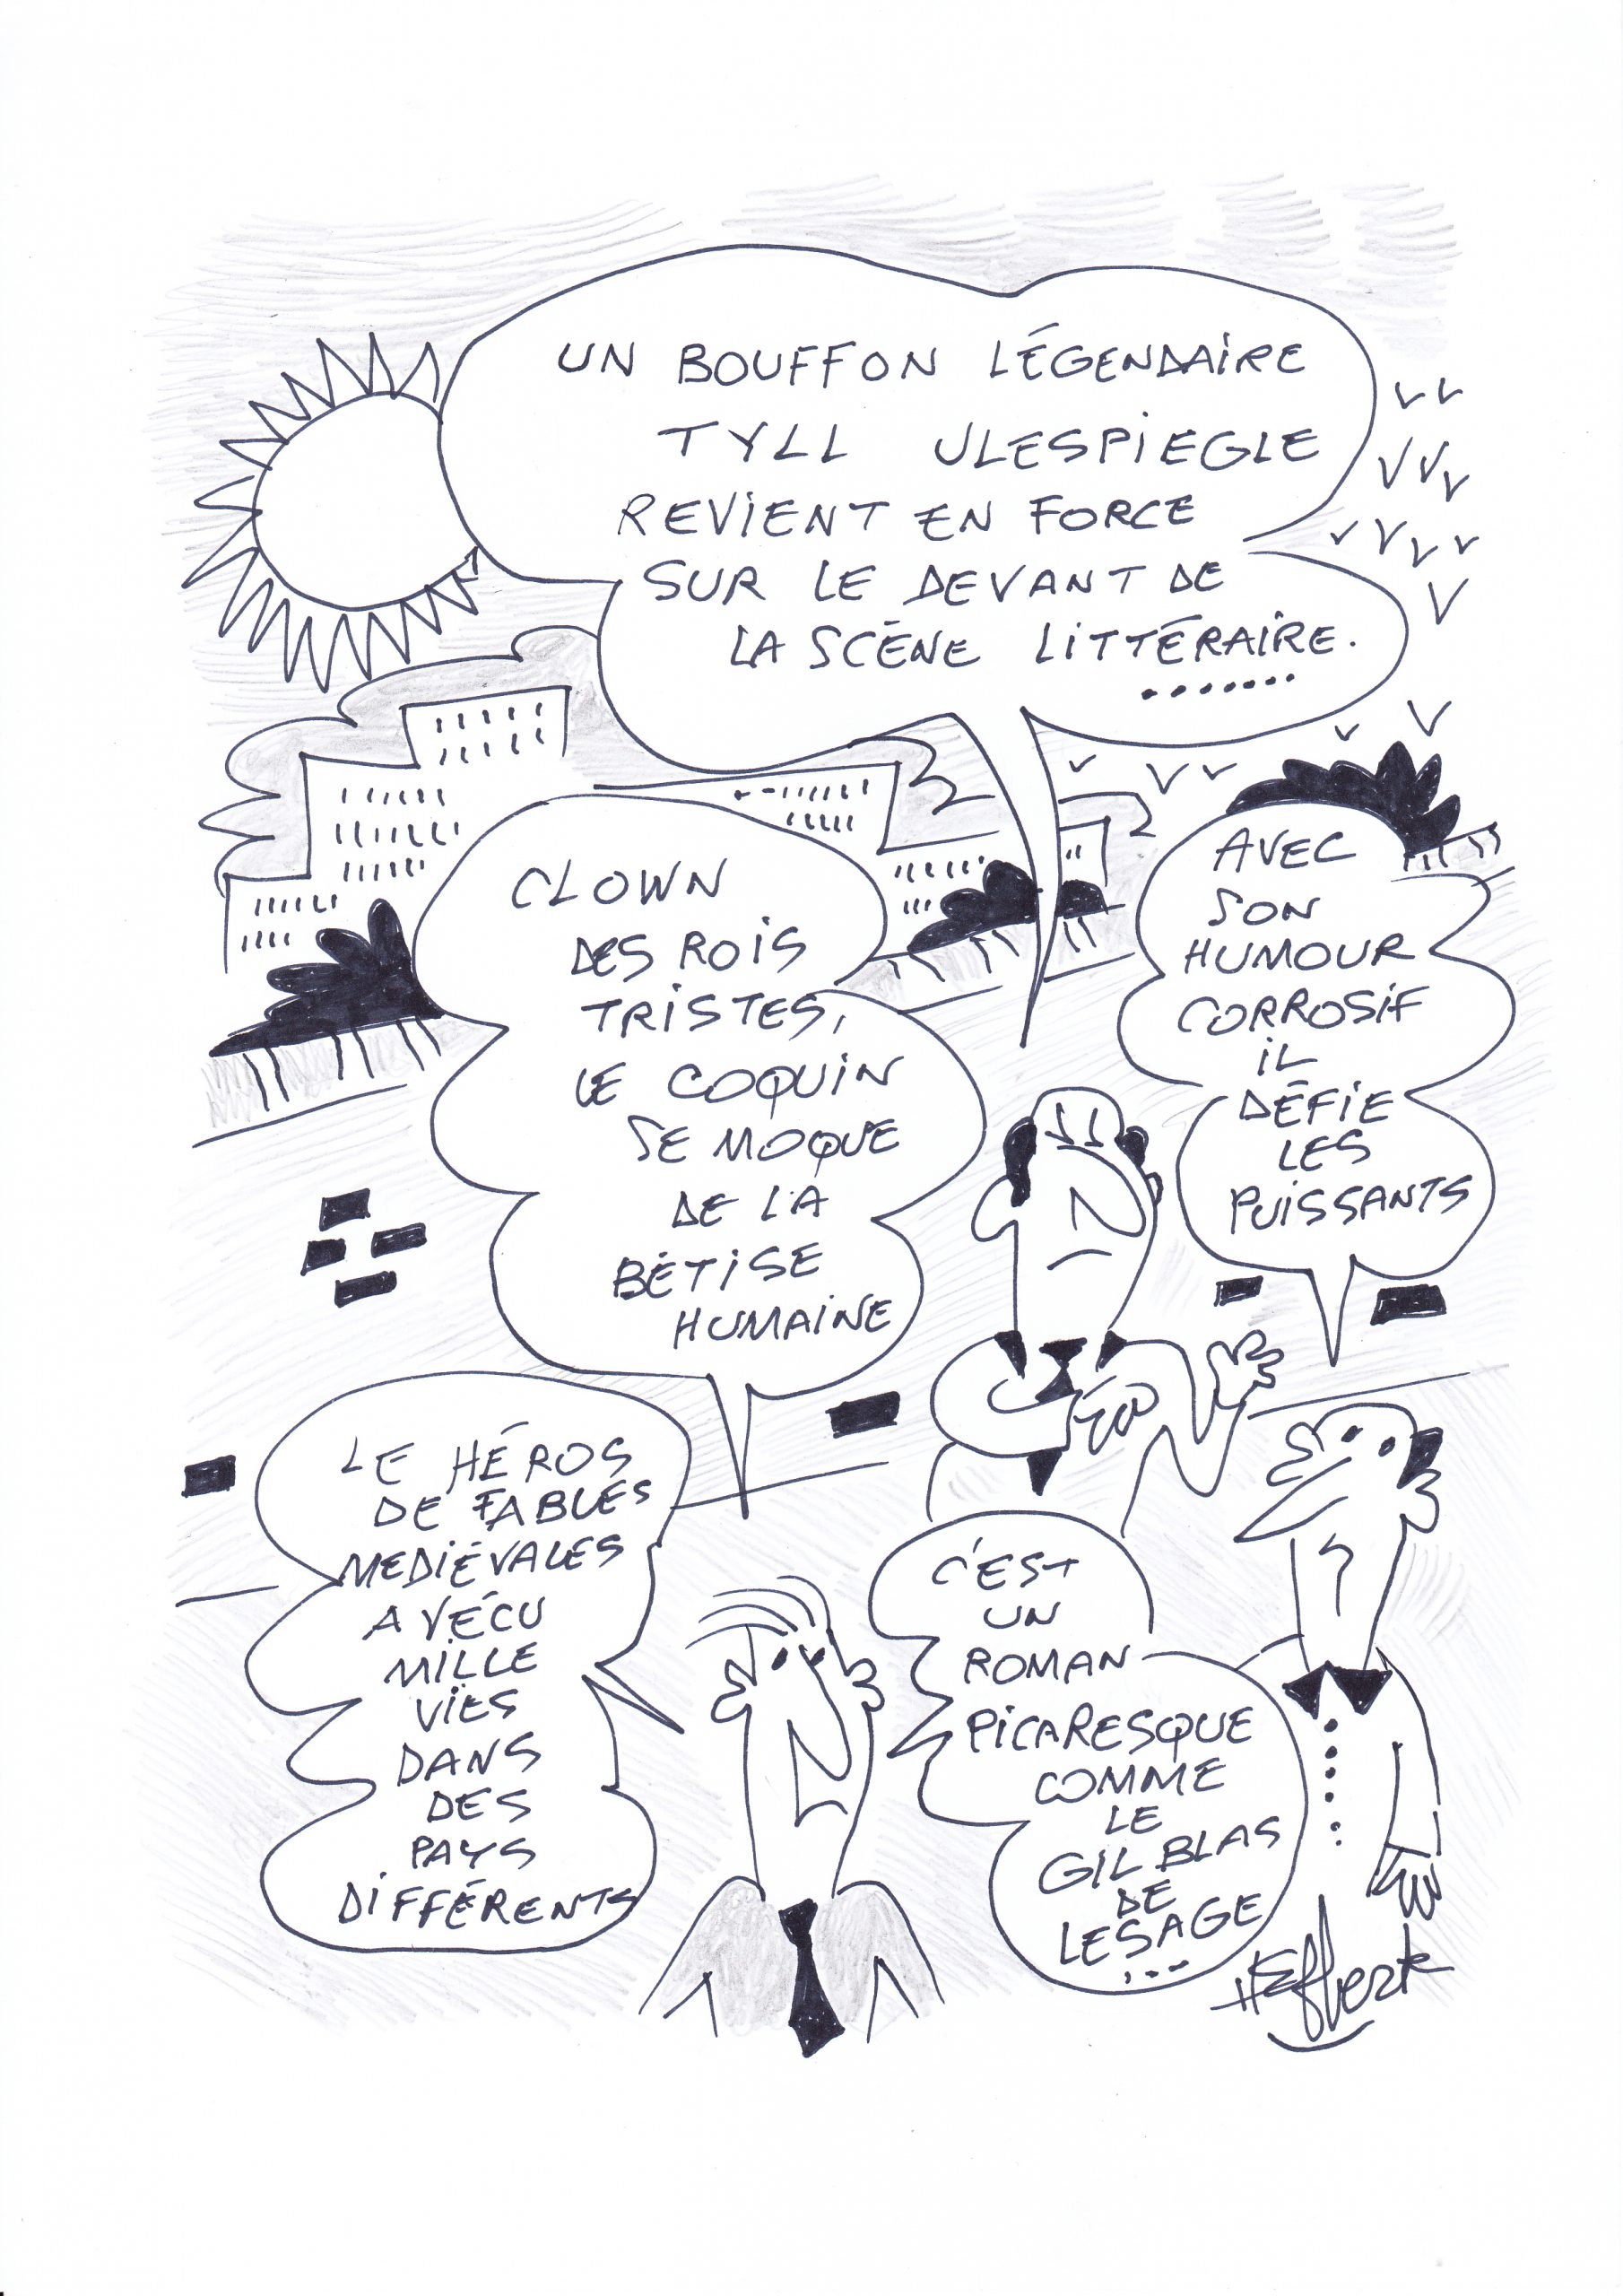 UN BOUFFON LÉGENDAIRE
TYLL ULESPIEGLE
REVIENT EN FORCE
SUR LE DEVANT DE
LA SCÈNE LITTÉRAIRE.
.......
CLOWN
DES ROIS
TRISTES,
LE COQUIN
SE MOQUE
DE LA
BÊTISE
HUMAINE
AVEC
SON
HUMOUR
CORROSIF
IL
DÉFIE
LES
PUISSANTS
LE HÉROS
DE FABLES
MEDIÉVALES
A VÉCU
MILLE
VIES
DANS
DES
PAYS
DIFFÉRENTS
C'EST
UN
ROMAN
PICARESQUE
COMME
LE
GIL BLAS
DE
LESAGE
...